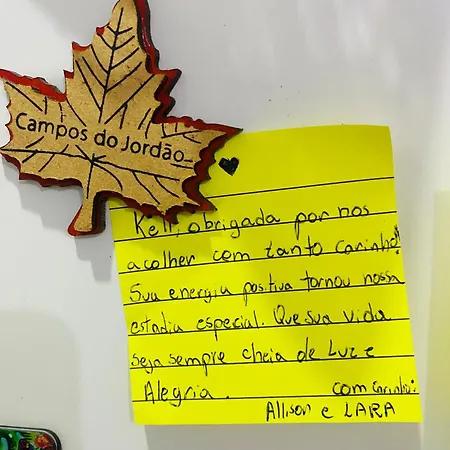 Campos do Jordão
Kelli, obrigada por nos
acolher com tanto carinho!
Sua energia positiva tornou nossa
estadia especial. Que sua vida
seja sempre cheia de Luz e
Alegria. com carinho:
Allison e LARA